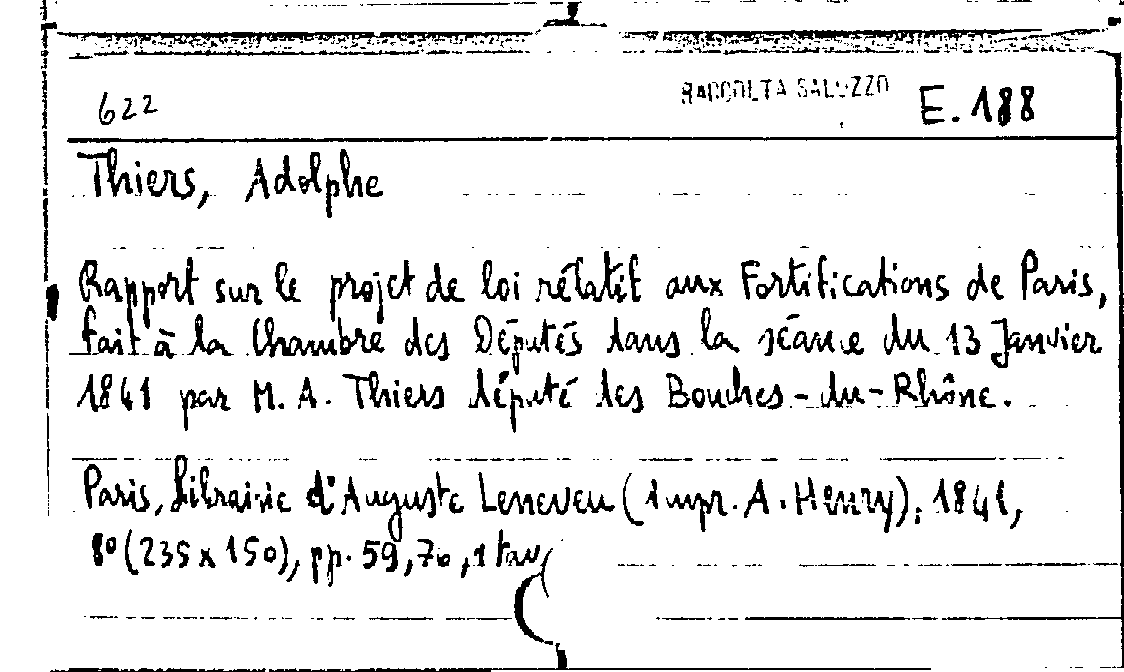 622 RACCOLTA SALUZZO E. 188
Thiers, Adolphe
Rapport sur le projet de loi rélatif aux Fortifications de Paris,
fait à la Chambre des Députés dans la séance du 13 Janvier
1841 par M. A. Thiers député des Bouches-du-Rhône.
Paris, Librairie d'Auguste Leneveu (impr. A. Henry), 1841,
8° (235 x 150), pp. 59, 76, 1 tav.